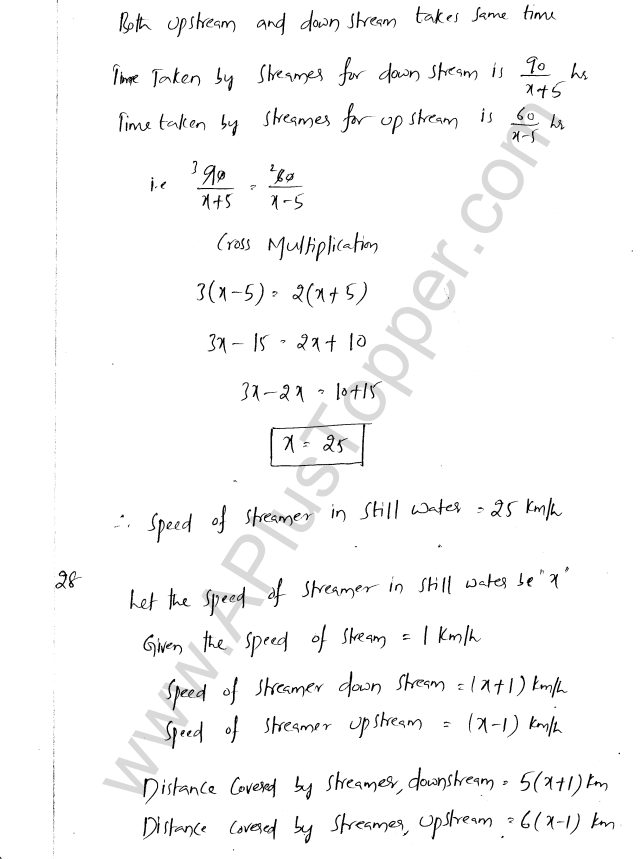 Both upstream and down stream takes same time
Time Taken by streames for down stream is 90/x+5 hs
Time taken by streames for up stream is 60/x-5 hs
i.e 3 90/x+5 = 2 60/x-5
Cross Multiplication
3(x-5) = 2(x+5)
3x - 15 = 2x + 10
3x - 2x = 10+15
x = 25
∴ Speed of streamer in still water = 25 km/h
28 Let the speed of streamer in still water be "x"
Given the speed of stream = 1 km/h
Speed of streamer down stream = (x+1) km/h
Speed of streamer upstream = (x-1) km/h
Distance covered by streamer, downstream = 5(x+1) km
Distance covered by streamer, upstream = 6(x-1) km
www.APlusTopper.com